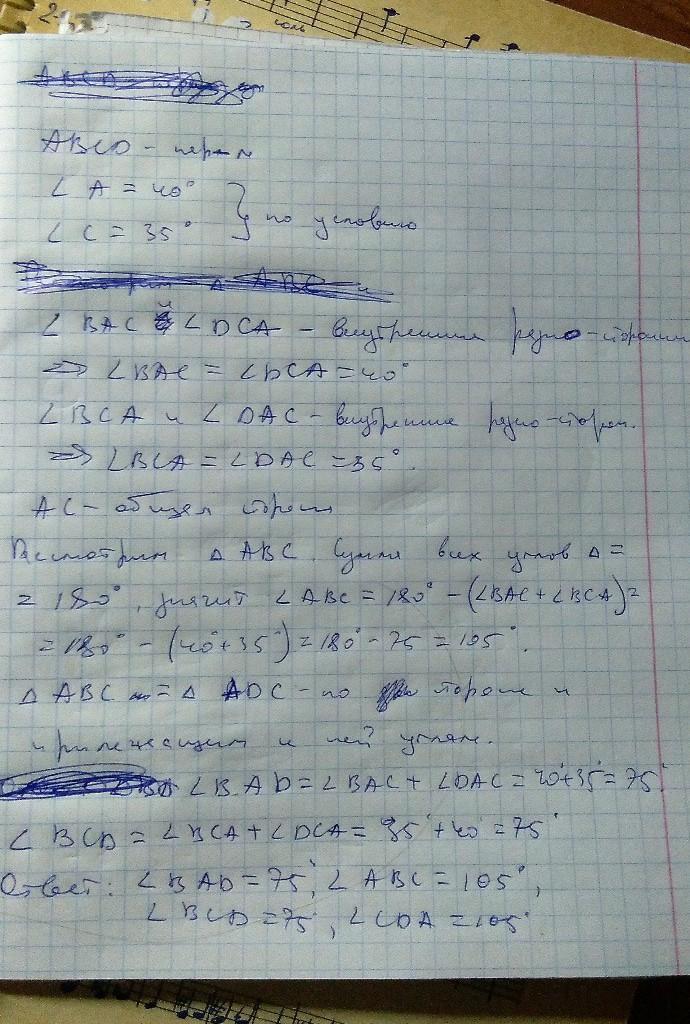 2.
соль
ABCD - пер-м
∠ A = 40°
∠ C = 35° } по условию
∠ BAC и ∠ DCA - внутренние разно-сторонн
=> ∠BAC = ∠DCA = 40°
∠ BCA и ∠ DAC - внутренние разно-сторон.
=> ∠BCA = ∠DAC = 35°.
AC - общая сторона
Рассмотрим △ ABC. Сумма всех углов △ =
= 180°, значит ∠ ABC = 180° - (∠BAC + ∠BCA) =
= 180° - (40° + 35°) = 180° - 75 = 105°.
△ ABC = △ ADC - по стороне и
прилежащим к ней углам.
∠ BAD = ∠BAC + ∠DAC = 40° + 35° = 75°
∠ BCD = ∠BCA + ∠DCA = 35° + 40° = 75°
Ответ: ∠ BAD = 75°, ∠ ABC = 105°,
∠ BCD = 75°, ∠ CDA = 105°